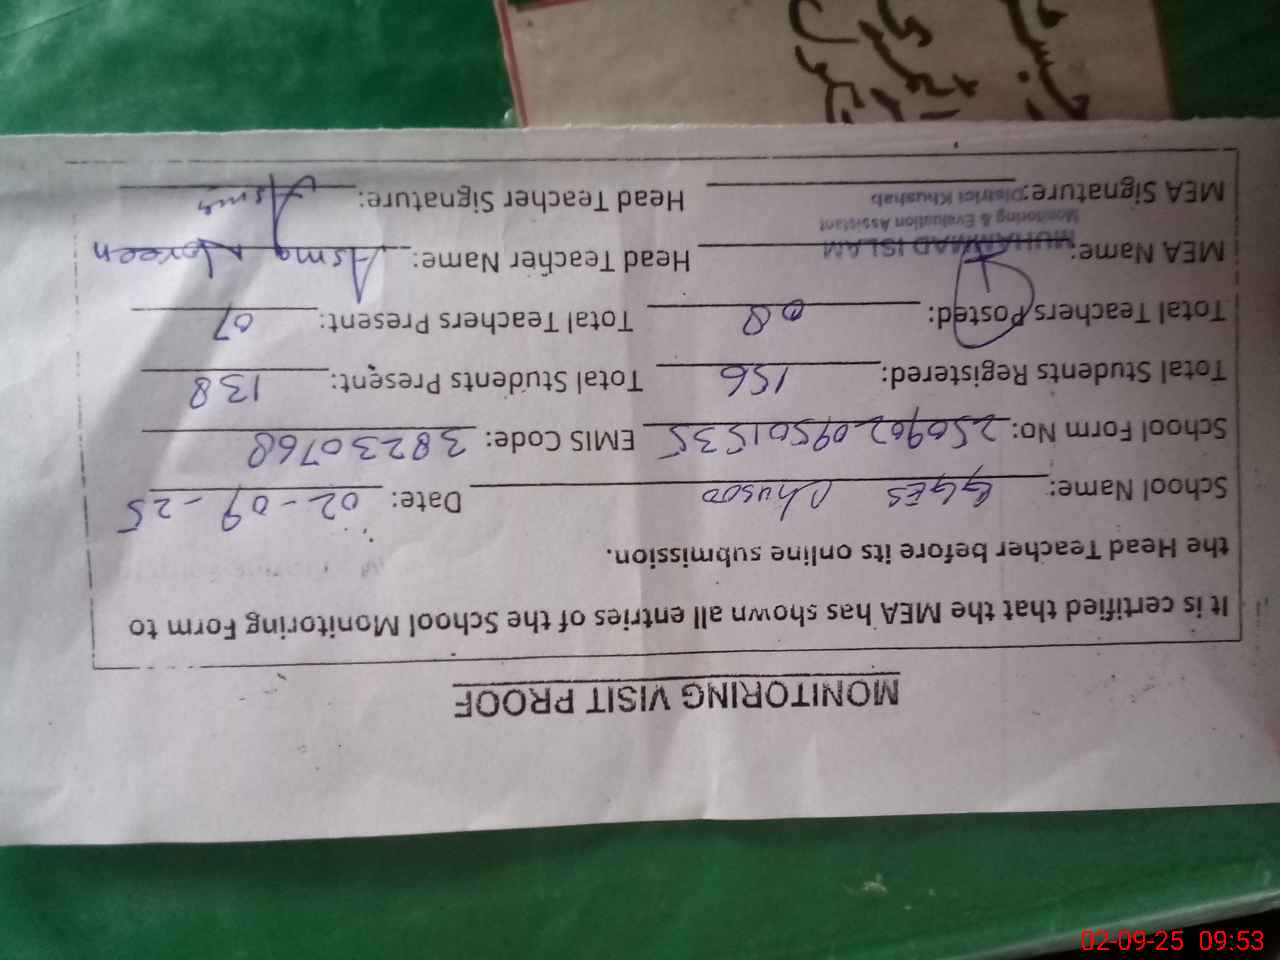 MONITORING VISIT PROOF
It is certified that the MEA has shown all entries of the School Monitoring Form to
the Head Teacher before its online submission.
School Name: GGES Chusoo Date: 02-09-25
School Form No: 25090209501535 EMIS Code: 38230768
Total Students Registered: 156 Total Students Present: 138
Total Teachers Posted: 08 Total Teachers Present: 07
MEA Name: MUHAMMAD ISLAM Head Teacher Name: Asma Noreen
Monitoring & Evaluation Assistant
District Khushab
MEA Signature: Head Teacher Signature: Asma
02-09-25 09:53